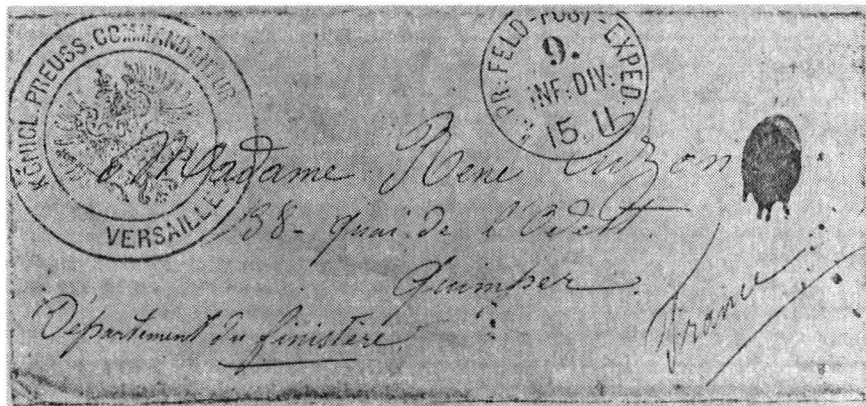 KÖNIGL. PREUSS. COMMANDANTUR
VERSAILLES
K. PR. FELD-POST-EXPED.
9.
INF. DIV.
15. 11.
Madame Rene
38 - Quai de l'Odett.
Quimper.
Département du finistère
France